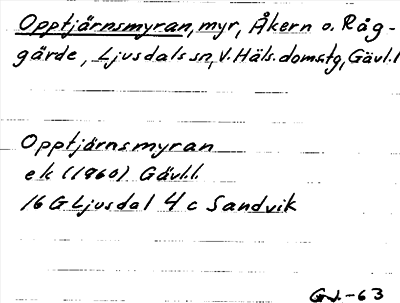 Opptjärnsmyran, myr, Åkern o. Råg-
gärde, Ljusdals sn, V. Häls. domstg, Gävl. l
Opptjärnsmyran
ek (1960) Gävl.l.
16 G Ljusdal 4 c Sandvik
G.J.-63